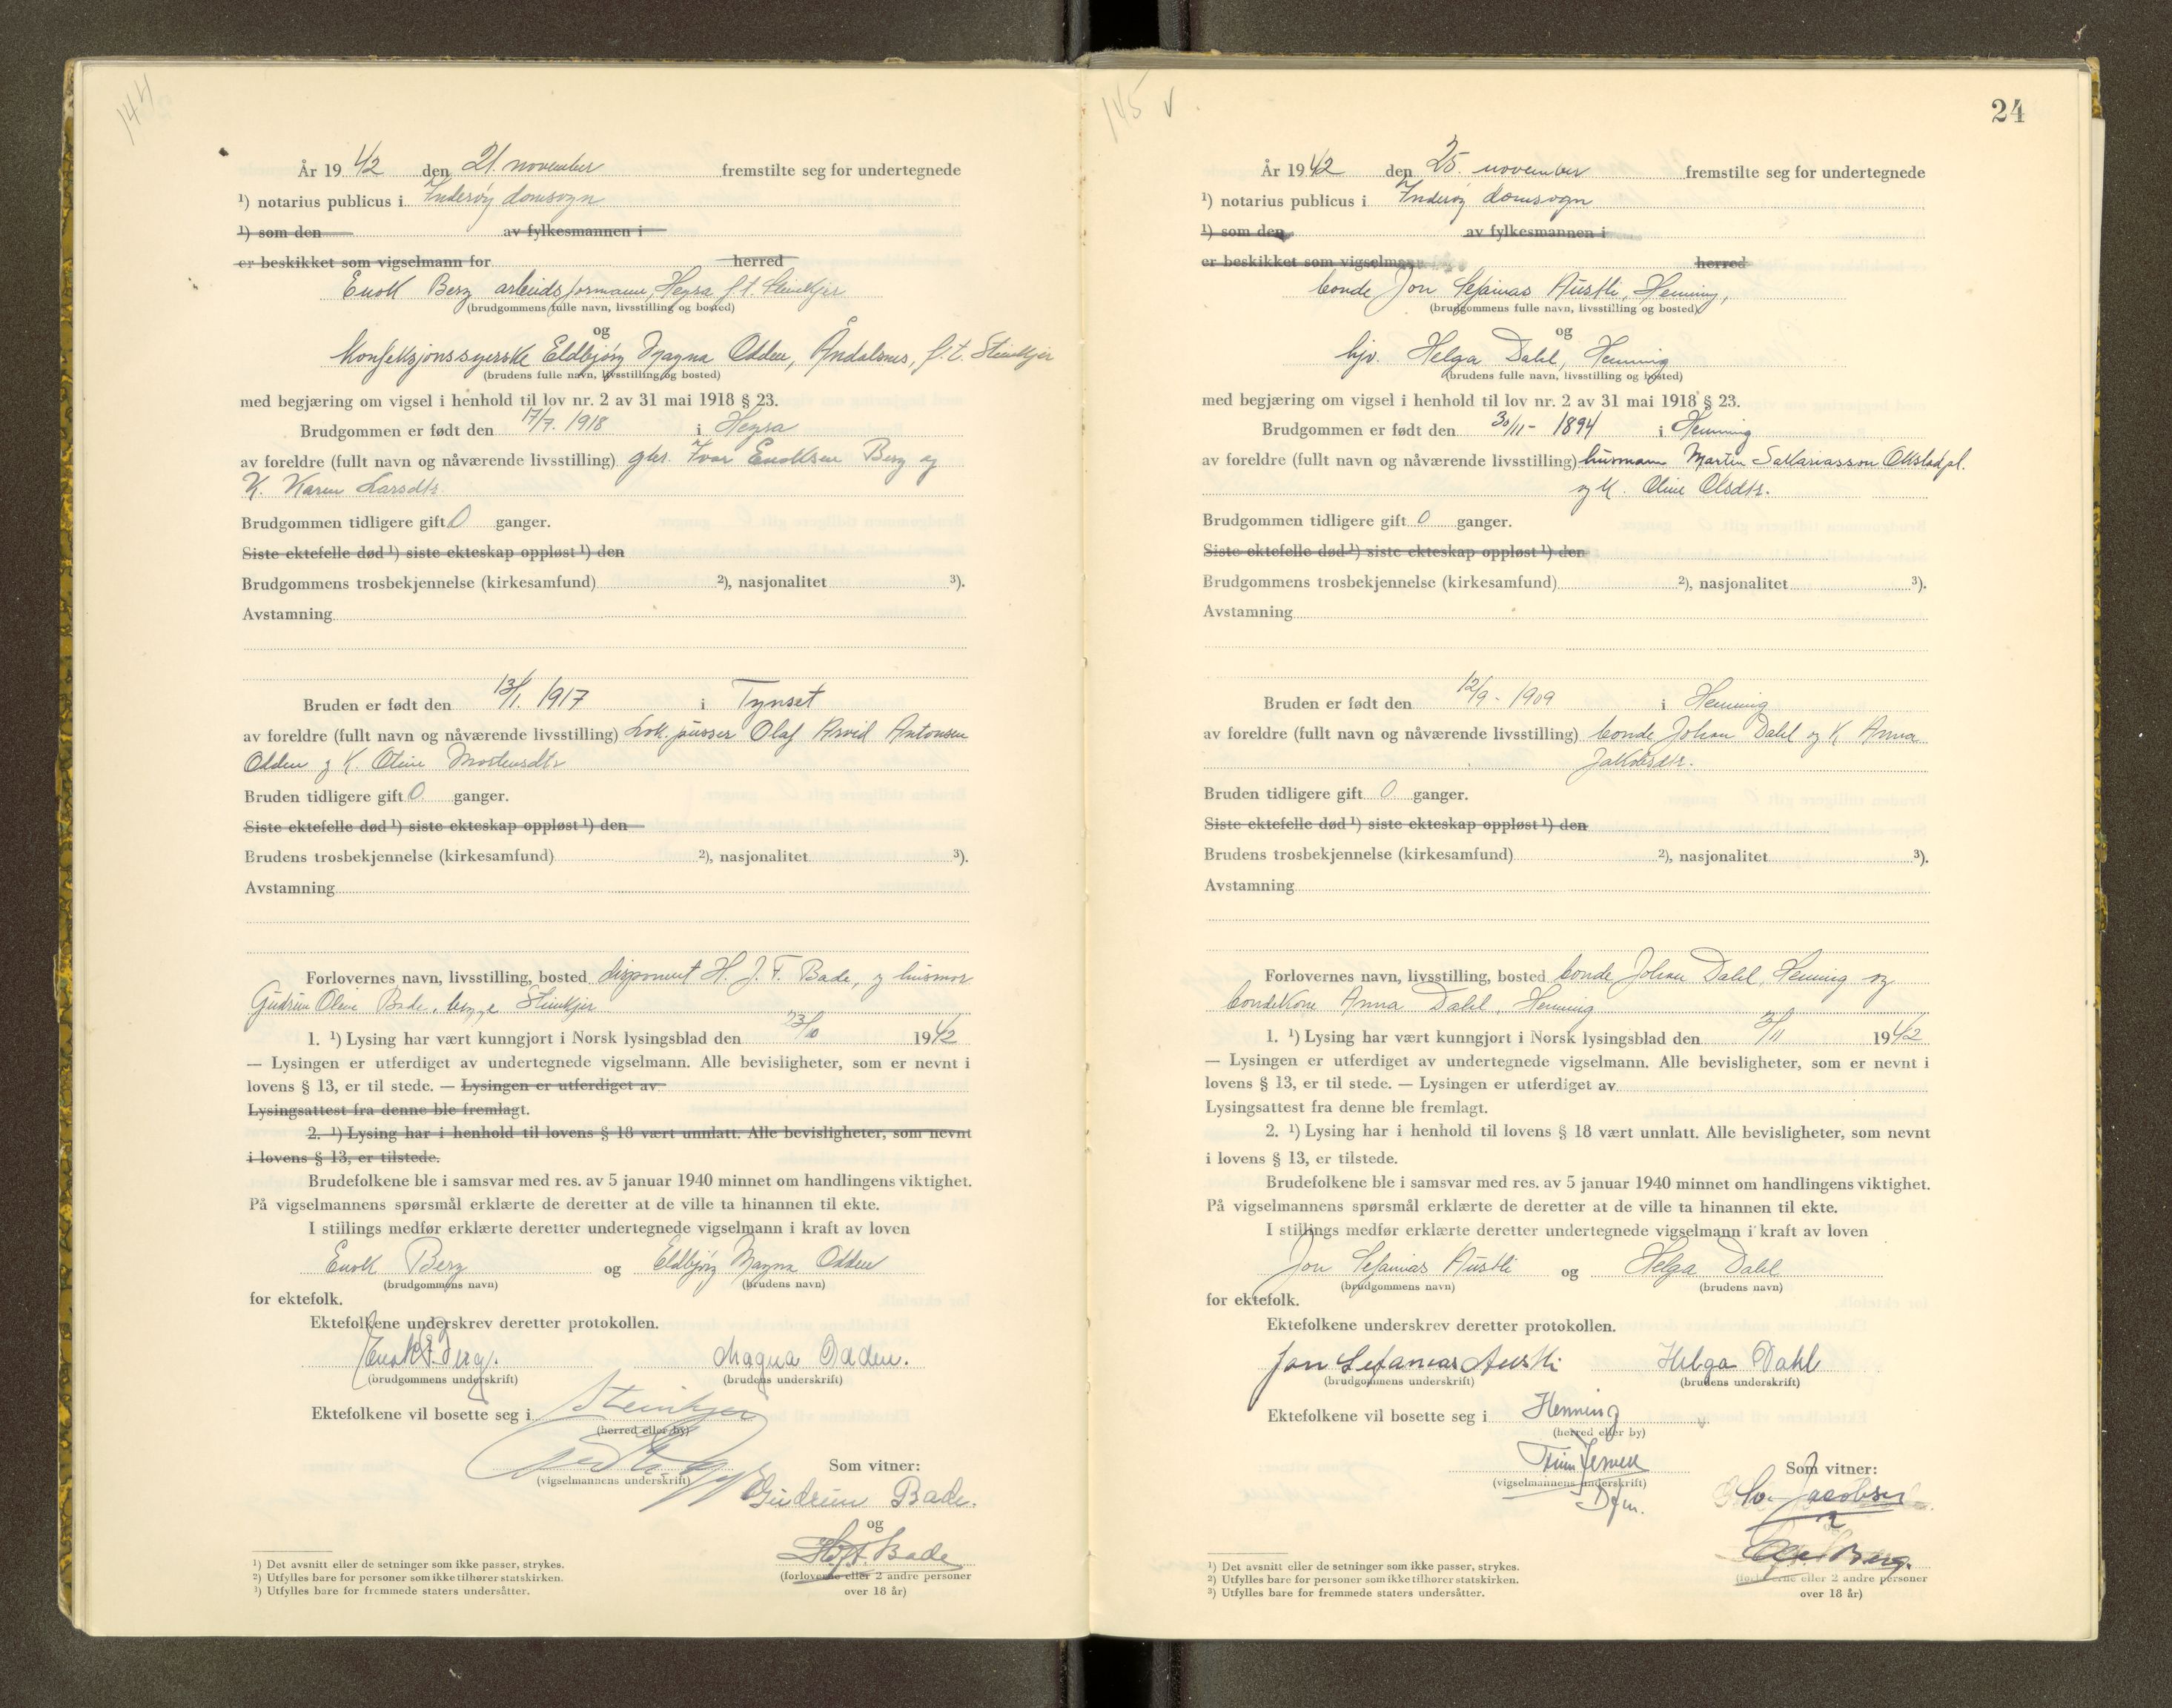 144
År 19 42 den 21. november fremstilte seg for undertegnede
¹) notarius publicus i Inderøy domsogn
¹) som den av fylkesmannen i
er beskikket som vigselmann for herred
Enok Berg arbeidsformann, Heyra f.t. Steinkjer
(brudgommens fulle navn, livsstilling og bosted)
og
konfeksjonssyerske Eldbjørg Magna Odden, Åndalsnes, f.t. Steinkjer
(brudens fulle navn, livsstilling og bosted)
med begjæring om vigsel i henhold til lov nr. 2 av 31 mai 1918 § 23.
Brudgommen er født den 17/7. 1918 i Heyra
av foreldre (fullt navn og nåværende livsstilling) gbr. Ivar Enoksen Berg og
K. Karen Larsdtr.
Brudgommen tidligere gift 0 ganger.
Siste ektefelle død ¹) siste ekteskap oppløst ¹) den
Brudgommens trosbekjennelse (kirkesamfund) ²), nasjonalitet ³).
Avstamning
Bruden er født den 13/1. 1917 i Tynset
av foreldre (fullt navn og nåværende livsstilling) Lok. pusser Olaf Arvid Antonsen
Odden og K. Oline Mortensdtr
Bruden tidligere gift 0 ganger.
Siste ektefelle død ¹) siste ekteskap oppløst ¹) den
Brudens trosbekjennelse (kirkesamfund) ²), nasjonalitet ³).
Avstamning
Forlovernes navn, livsstilling, bosted disponent H. J. F. Bade, og husmor
Gudrun Oline Bade, begge Steinkjer
1. ¹) Lysing har vært kunngjort i Norsk lysingsblad den 23/10 19 42
— Lysingen er utferdiget av undertegnede vigselmann. Alle bevisligheter, som er nevnt i
lovens § 13, er til stede. — Lysingen er utferdiget av
Lysingsattest fra denne ble fremlagt.
2. ¹) Lysing har i henhold til lovens § 18 vært unnlatt. Alle bevisligheter, som nevnt
i lovens § 13, er tilstede.
Brudefolkene ble i samsvar med res. av 5 januar 1940 minnet om handlingens viktighet.
På vigselmannens spørsmål erklærte de deretter at de ville ta hinannen til ekte.
I stillings medfør erklærte deretter undertegnede vigselmann i kraft av loven
Enok Berg og Eldbjørg Magna Odden
(brudgommens navn) (brudens navn)
for ektefolk.
Ektefolkene underskrev deretter protokollen.
Enok Berg. Magna Odden.
(brudgommens underskrift) (brudens underskrift)
Ektefolkene vil bosette seg i Steinkjer
(herred eller by)
(vigselmannens underskrift)
Som vitner:
Gudrun Bade.
og
Bade
(forloverne eller 2 andre personer
over 18 år)
¹) Det avsnitt eller de setninger som ikke passer, strykes.
²) Utfylles bare for personer som ikke tilhører statskirken.
³) Utfylles bare for fremmede staters undersåtter.
145 v
24
År 19 42 den 25. november fremstilte seg for undertegnede
¹) notarius publicus i Inderøy domsogn
¹) som den av fylkesmannen i
er beskikket som vigselmann herred
bonde Jon Sefanias Austli, Henning,
(brudgommens fulle navn, livsstilling og bosted)
og
hjv. Helga Dahl, Henning
(brudens fulle navn, livsstilling og bosted)
med begjæring om vigsel i henhold til lov nr. 2 av 31 mai 1918 § 23.
Brudgommen er født den 30/11 - 1894 i Henning
av foreldre (fullt navn og nåværende livsstilling) husmann Martin Sakariasson Okstadpl.
og K. Oline Olsdtr.
Brudgommen tidligere gift 0 ganger.
Siste ektefelle død ¹) siste ekteskap oppløst ¹) den
Brudgommens trosbekjennelse (kirkesamfund) ²), nasjonalitet ³).
Avstamning
Bruden er født den 12/9 - 1909 i Henning
av foreldre (fullt navn og nåværende livsstilling) bonde Johan Dahl og K. Anna
Jakobsdtr.
Bruden tidligere gift 0 ganger.
Siste ektefelle død ¹) siste ekteskap oppløst ¹) den
Brudens trosbekjennelse (kirkesamfund) ²), nasjonalitet ³).
Avstamning
Forlovernes navn, livsstilling, bosted bonde Johan Dahl, Henning og
bondekone Anna Dahl, Henning
1. ¹) Lysing har vært kunngjort i Norsk lysingsblad den 3/11 19 42
— Lysingen er utferdiget av undertegnede vigselmann. Alle bevisligheter, som er nevnt i
lovens § 13, er til stede. — Lysingen er utferdiget av
Lysingsattest fra denne ble fremlagt.
2. ¹) Lysing har i henhold til lovens § 18 vært unnlatt. Alle bevisligheter, som nevnt
i lovens § 13, er tilstede.
Brudefolkene ble i samsvar med res. av 5 januar 1940 minnet om handlingens viktighet.
På vigselmannens spørsmål erklærte de deretter at de ville ta hinannen til ekte.
I stillings medfør erklærte deretter undertegnede vigselmann i kraft av loven
Jon Sefanias Austli og Helga Dahl
(brudgommens navn) (brudens navn)
for ektefolk.
Ektefolkene underskrev deretter protokollen.
Jon Sefanias Austli Helga Dahl
(brudgommens underskrift) (brudens underskrift)
Ektefolkene vil bosette seg i Henning
(herred eller by)
(vigselmannens underskrift)
Dfm.
Som vitner:
Jacobsen
Berg.
(forloverne eller 2 andre personer
over 18 år)
¹) Det avsnitt eller de setninger som ikke passer, strykes.
²) Utfylles bare for personer som ikke tilhører statskirken.
³) Utfylles bare for fremmede staters undersåtter.